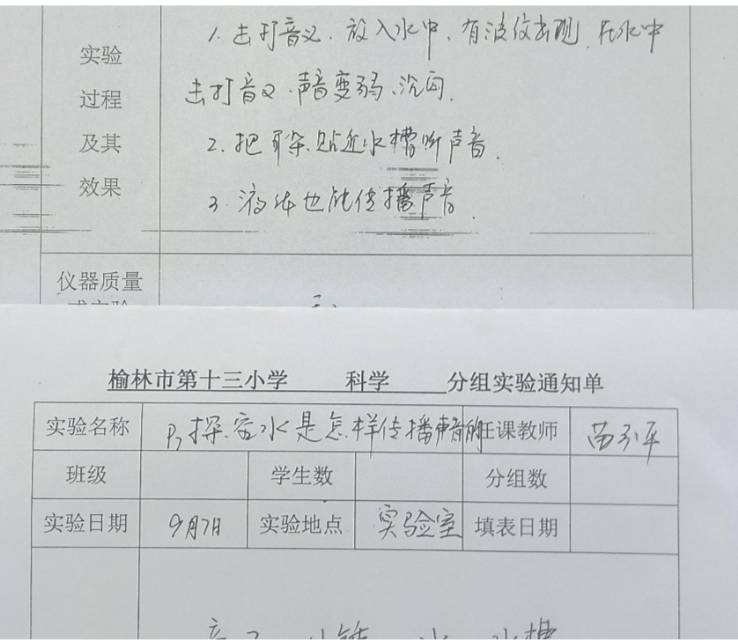 1. 击打音义. 放入水中、有波纹出现. 在水中
实验
击打音义. 声音变弱、沉闷.
过程
及其
2. 把耳朵贴近水槽听声音.
效果
3. 液体也能传播声音.
仪器质量
榆林市第十三小学 科学 分组实验通知单
实验名称 探究水是怎样传播声音的 任课教师
班级 学生数 分组数
实验日期 9月7日 实验地点 实验室 填表日期